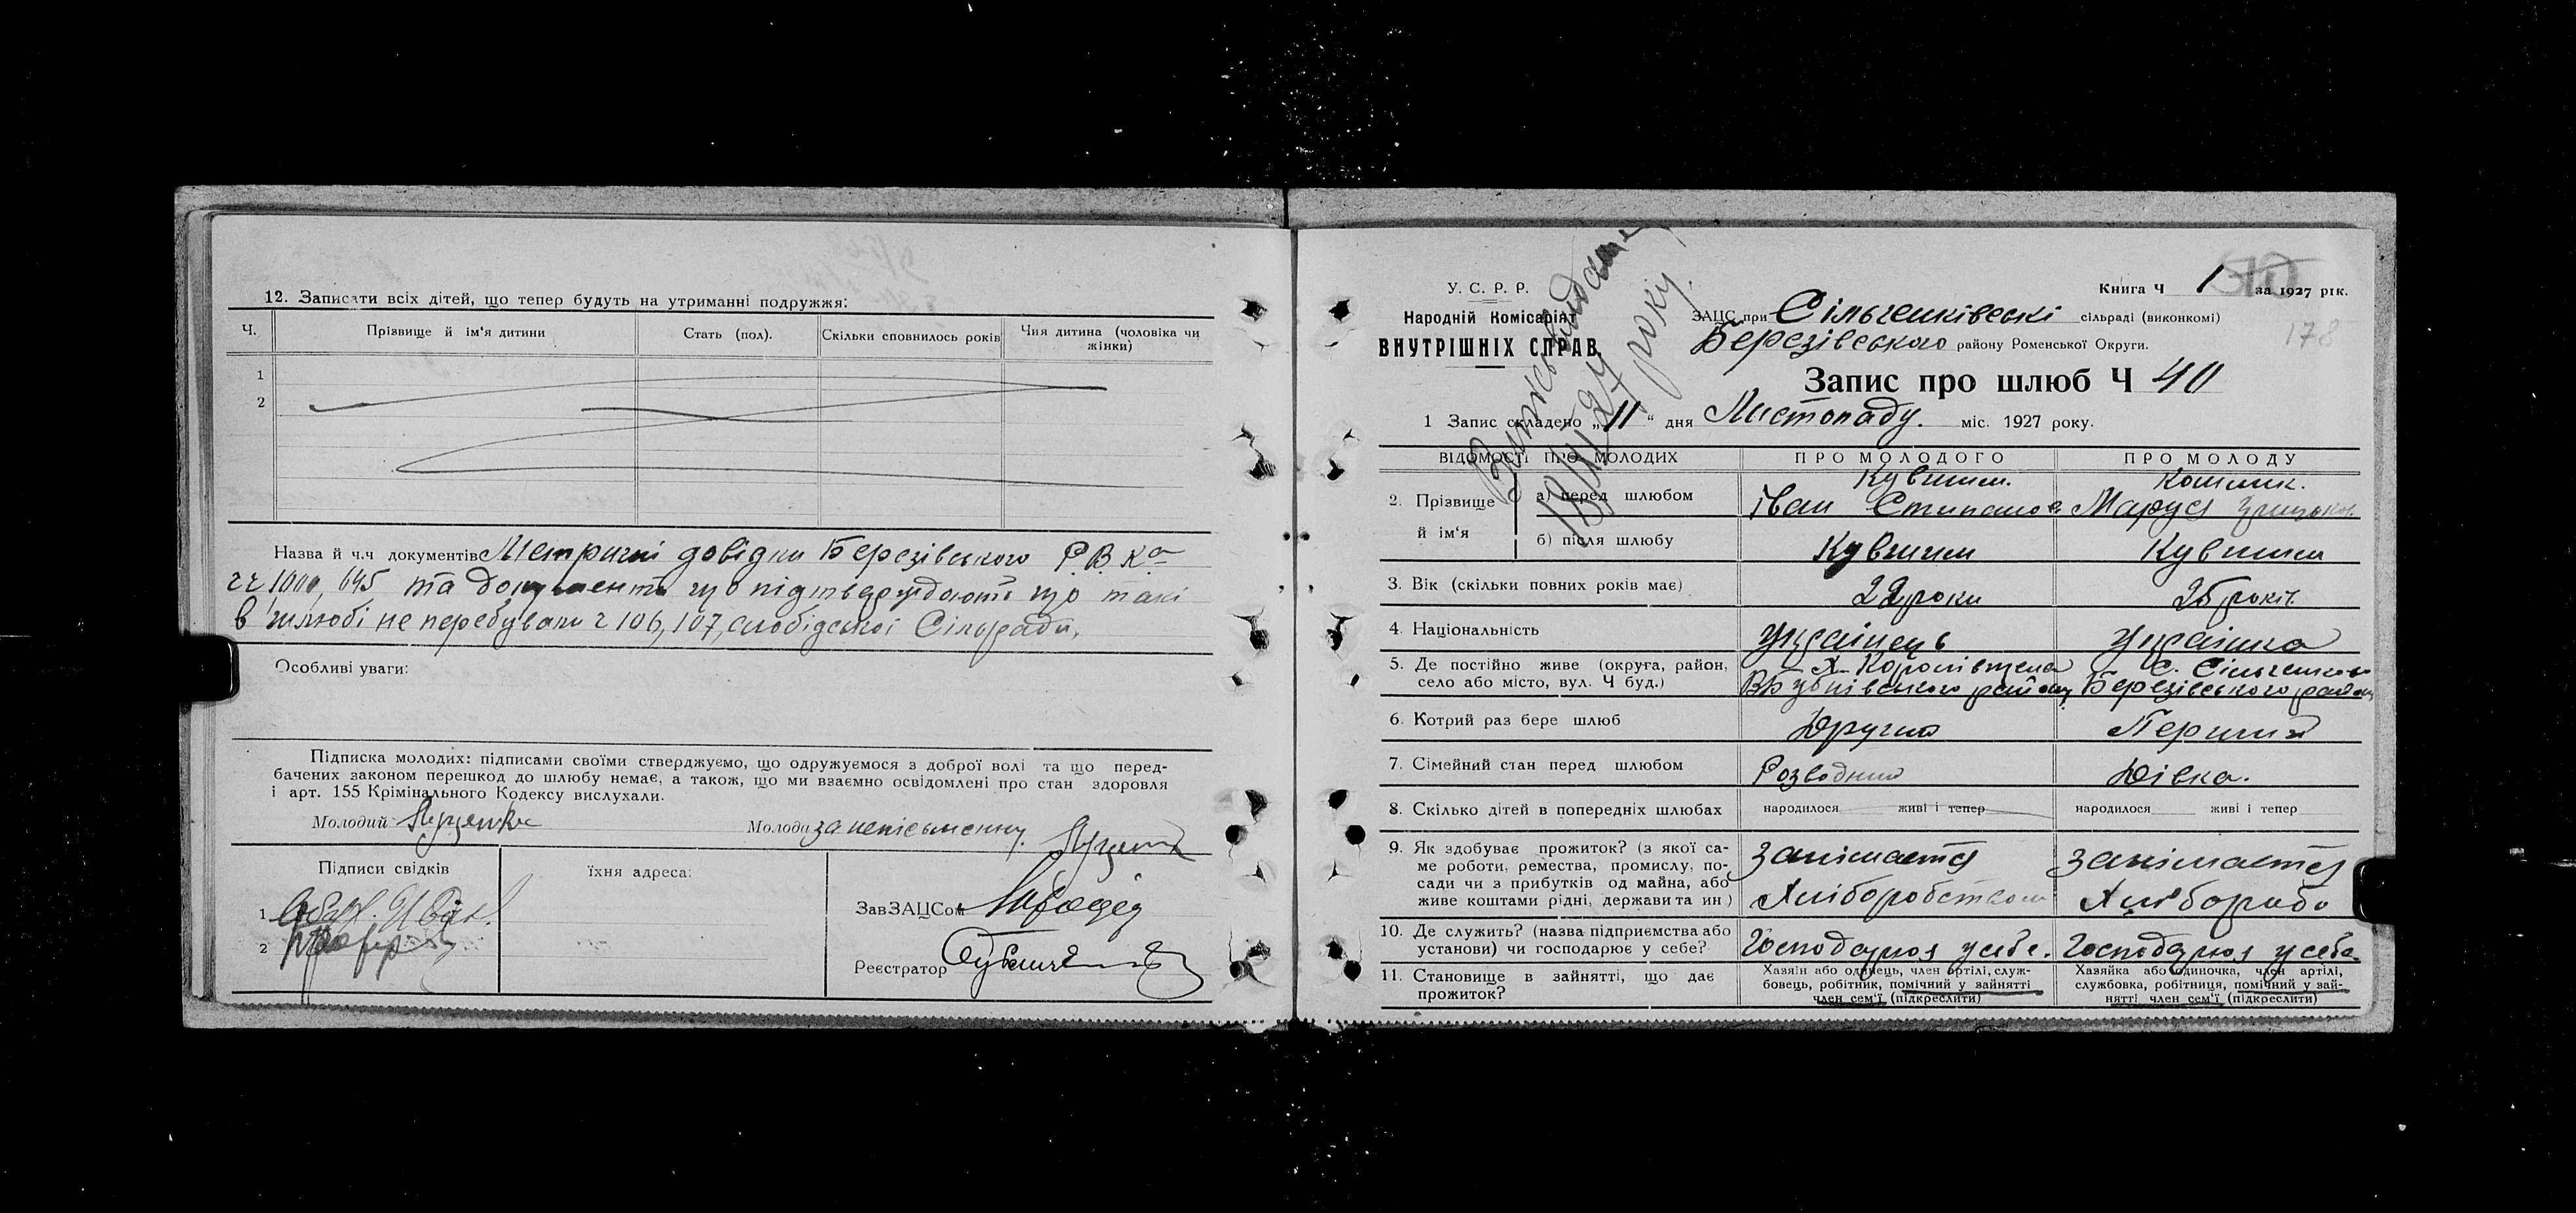 12. Записати всіх дітей, що тепер будуть на утриманні подружжя:
Ч. Прізвище й ім'я дитини Стать (пол). Скільки сповнилось років Чия дитина (чоловіка чи жінки)
1
2
Назва й ч.ч документів Метричні довідки Березівського Р.В.К-а
чч 1000, 645 та документи що підтверждають що такі
в шлюбі не перебували ч 106, 107, слобідської Сільради.
Особливі уваги:
Підписка молодих: підписами своїми стверджуємо, що одружуємося з доброї волі та що перед-
бачених законом перешкод до шлюбу немає, а також, що ми взаємно освідомлені про стан здоровля
і арт. 155 Крімінального Кодексу вислухали.
Молодий Молода за неписьменну.
Підписи свідків їхня адреса:
1
2
ЗавЗАЦСом
Реєстратор
У. С. Р. Р.
Народній Комісаріят
ВНУТРІШНІХ СПРАВ.
Книга Ч 1 за 1927 рік.
178
ЗАЦС при Сільченківські сільраді (виконкомі)
Березівського району Роменської Округи.
Запис про шлюб Ч 40
1 Запис складено „11“ дня Листопаду. міс. 1927 року.
ВІДОМОСТІ ПРО МОЛОДИХ ПРО МОЛОДОГО ПРО МОЛОДУ
2. Прізвище й ім'я
а) перед шлюбом Іван Маруся
б) після шлюбу
3. Вік (скільки повних років має) 22 роки 25 років.
4. Національність Українець Українка
5. Де постійно живе (округа, район,
село або місто, вул. Ч буд.) району С. Сільченково Березівського району
6. Котрий раз бере шлюб Другий Перший
7. Сімейний стан перед шлюбом Розводний Дівка.
8. Скілько дітей в попередніх шлюбах народилося живі і тепер народилося живі і тепер
9. Як здобуває прожиток? (з якої са-
ме роботи, ремества, промислу, по-
сади чи з прибутків од майна, або
живе коштами рідні, держави та ин) Занімается Хліборобством Занімается
10. Де служить? (назва підприємства або
установи) чи господарює у себе? Господарює у себе. Господарює у себе.
11. Становище в зайнятті, що дає
прожиток?
Хазяїн або одинець, член артілі, служ-
бовець, робітник, помічний у зайнятті
член сем'ї (підкреслити)
Хазяйка або одиночка, член артілі,
службовка, робітниця, помічний у зай-
нятті член сем'ї (підкреслити)